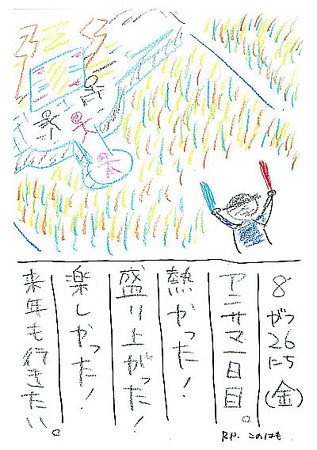 8がつ26にち(金)
アニサマ一日目。
熱かった!
盛り上がった!
楽しかった!
来年も行きたい。
RP. このはも